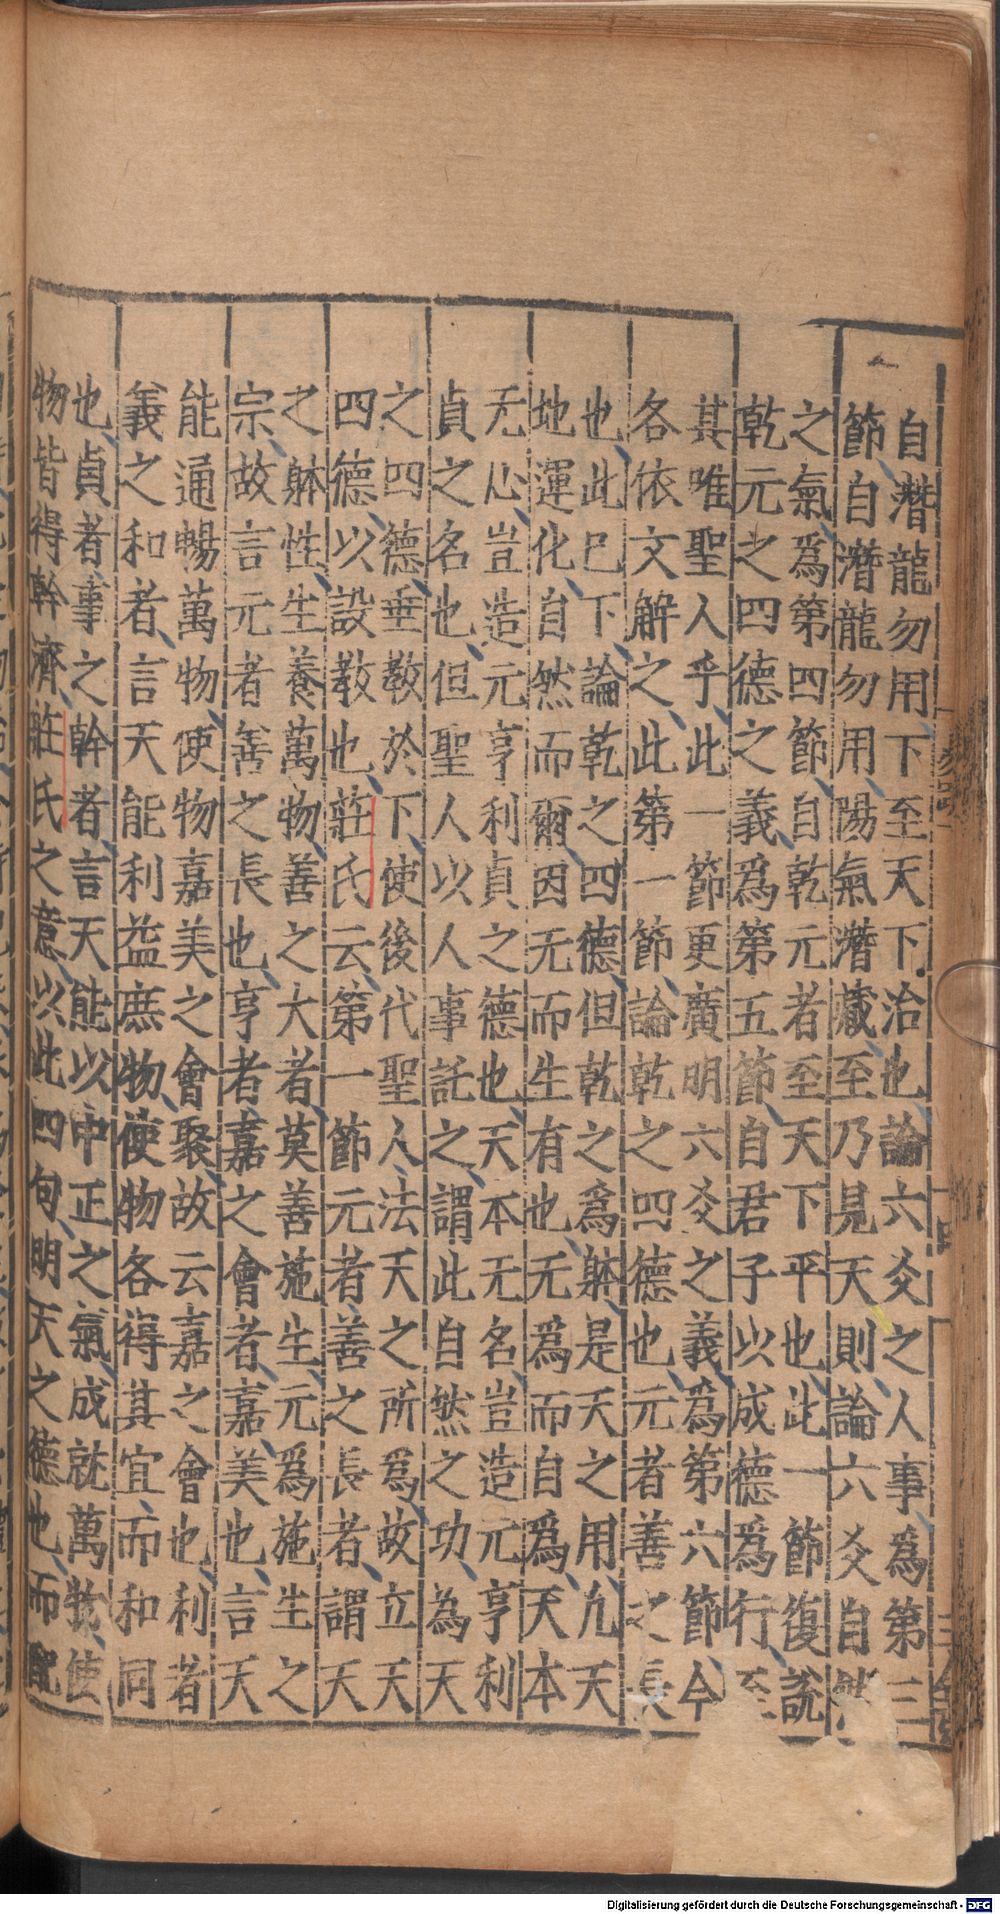 自潛龍勿用下至天下治也論六爻之人事為第三
節自潛龍勿用陽氣潛藏至乃見天則論六爻自然
之氣為第四節自乾元者至天下平也此一節復說
乾元之四德之義為第五節自君子以成德為行至
其唯聖人乎此一節更廣明六爻之義為第六節今
各依文解之此第一節論乾之四德也元者善之長
也此已下論乾之四德但乾之為躰是天之用凢天
地運化自然而爾因无而生有也无為而自為天本
无心豈造元亨利貞之德也天本无名豈造元亨利
貞之名也但聖人以人事託之謂此自然之功為天
之四德垂敎於下使後代聖人法天之所為故立天
四德以設敎也莊氏云第一節元者善之長者謂天
之躰性生養萬物善之大者莫善施生元為施生之
宗故言元者善之長也亨者嘉之會者嘉美也言天
能通暢萬物使物嘉美之會聚故云嘉之會也利者
義之和者言天能利益庶物使物各得其宜而和同
也貞者事之幹者言天能以中正之氣成就萬物使
物皆得幹濟莊氏之意以此四句明天之德也而配
Digitalisierung gefördert durch die Deutsche Forschungsgemeinschaft - DFG